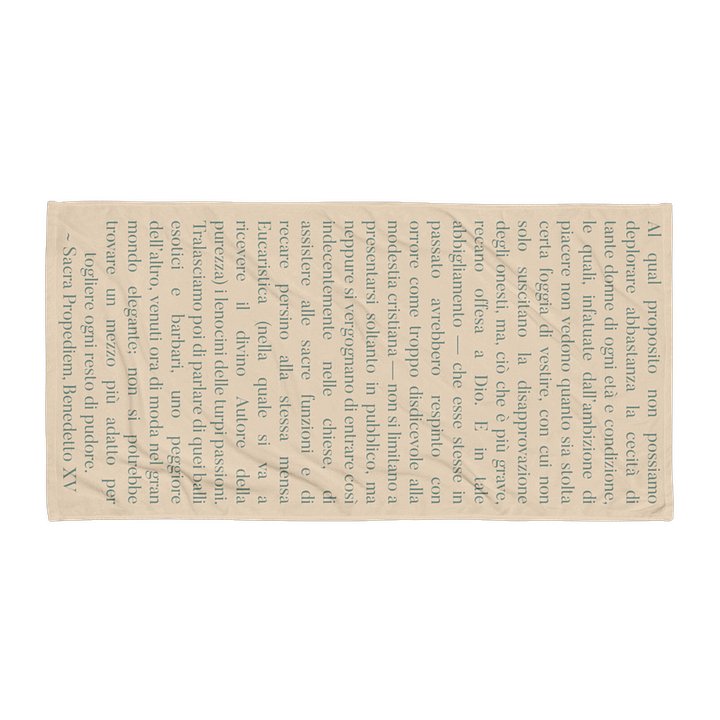 Al qual proposito non possiamo
deplorare abbastanza la cecità di
tante donne di ogni età e condizione,
le quali, infatuate dall'ambizione di
piacere non vedono quanto sia stolta
certa foggia di vestire, con cui non
solo suscitano la disapprovazione
degli onesti, ma, ciò che è più grave,
recano offesa a Dio. E in tale
abbigliamento — che esse stesse in
passato avrebbero respinto con
orrore come troppo disdicevole alla
modestia cristiana — non si limitano a
presentarsi soltanto in pubblico, ma
neppure si vergognano di entrare così
indecentemente nelle chiese, di
assistere alle sacre funzioni e di
recare persino alla stessa mensa
Eucaristica (nella quale si va a
ricevere il divino Autore della
purezza) i lenocini delle turpi passioni.
Tralasciamo poi di parlare di quei balli
esotici e barbari, uno peggiore
dell'altro, venuti ora di moda nel gran
mondo elegante; non si potrebbe
trovare un mezzo più adatto per
togliere ogni resto di pudore.
~ Sacra Propediem, Benedetto XV